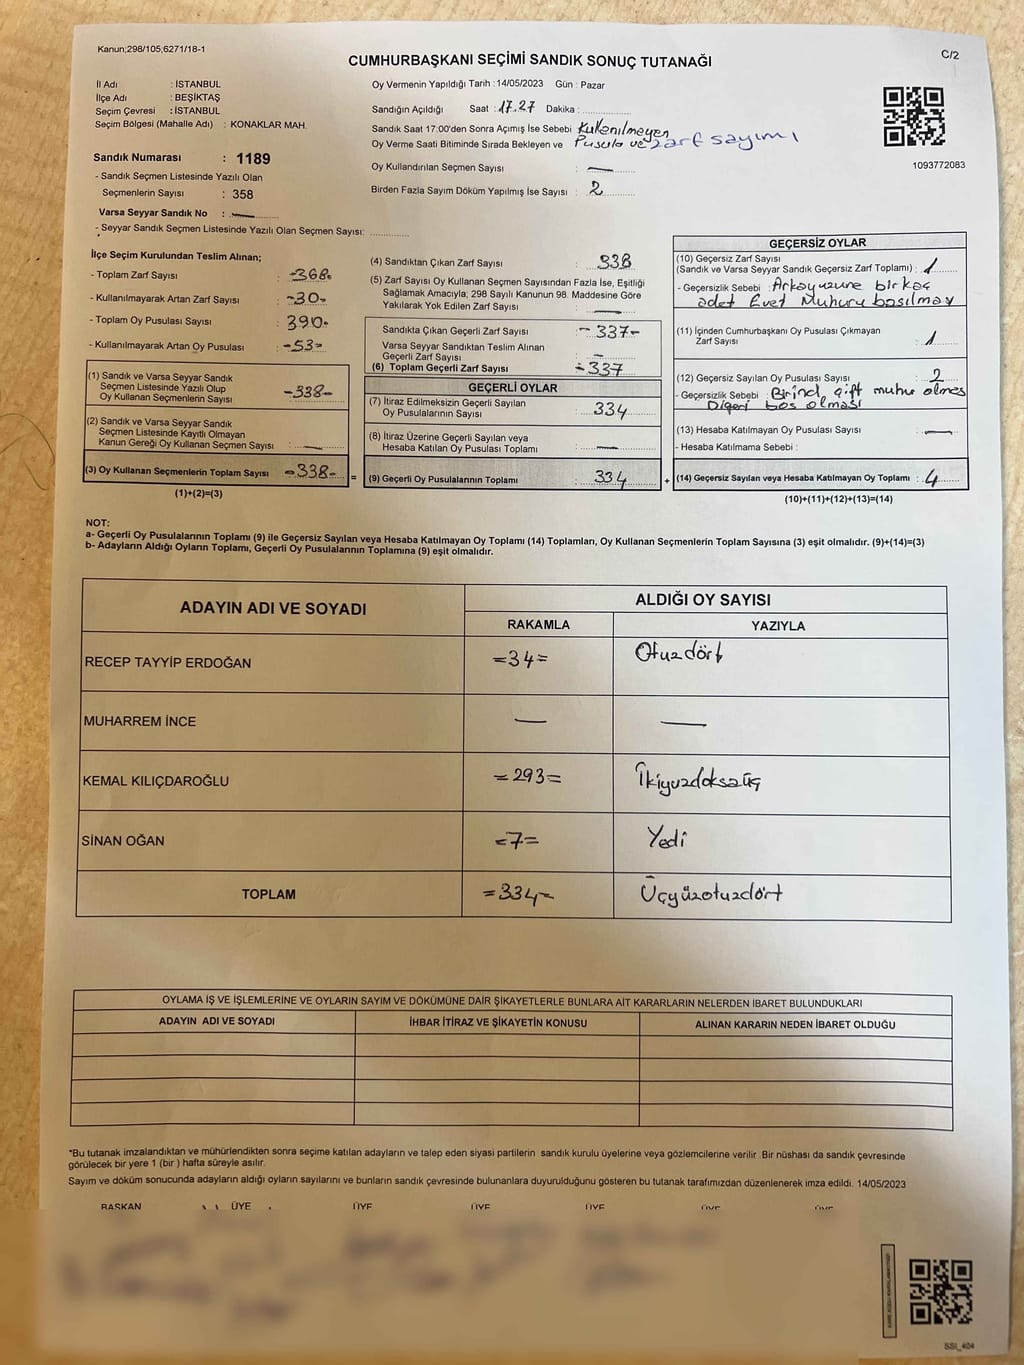 Kanun;298/105;6271/18-1
C/2
CUMHURBAŞKANI SEÇİMİ SANDIK SONUÇ TUTANAĞI
İl Adı : İSTANBUL
İlçe Adı : BEŞİKTAŞ
Seçim Çevresi : İSTANBUL
Seçim Bölgesi (Mahalle Adı) : KONAKLAR MAH.
Sandık Numarası : 1189
- Sandık Seçmen Listesinde Yazılı Olan
Seçmenlerin Sayısı : 358
Varsa Seyyar Sandık No : —
- Seyyar Sandık Seçmen Listesinde Yazılı Olan Seçmen Sayısı:
Oy Vermenin Yapıldığı Tarih : 14/05/2023 Gün : Pazar
Sandığın Açıldığı Saat : 17.27 Dakika :
Sandık Saat 17:00'den Sonra Açımış İse Sebebi Kullanılmayan
Oy Verme Saati Bitiminde Sırada Bekleyen ve Pusula ve zarf sayımı
Oy Kullandırılan Seçmen Sayısı : —
Birden Fazla Sayım Döküm Yapılmış İse Sayısı : 2
1093772083
İlçe Seçim Kurulundan Teslim Alınan;
- Toplam Zarf Sayısı : -368-
- Kullanılmayarak Artan Zarf Sayısı : -30-
- Toplam Oy Pusulası Sayısı : 390-
- Kullanılmayarak Artan Oy Pusulası : -53-
(1) Sandık ve Varsa Seyyar Sandık
Seçmen Listesinde Yazılı Olup
Oy Kullanan Seçmenlerin Sayısı : -338-
(2) Sandık ve Varsa Seyyar Sandık
Seçmen Listesinde Kayıtlı Olmayan
Kanun Gereği Oy Kullanan Seçmen Sayısı : —
(3) Oy Kullanan Seçmenlerin Toplam Sayısı -338- =
(1)+(2)=(3)
(4) Sandıktan Çıkan Zarf Sayısı : 338
(5) Zarf Sayısı Oy Kullanan Seçmen Sayısından Fazla İse, Eşitliği
Sağlamak Amacıyla, 298 Sayılı Kanunun 98. Maddesine Göre
Yakılarak Yok Edilen Zarf Sayısı : —
Sandıkta Çıkan Geçerli Zarf Sayısı : -337-
Varsa Seyyar Sandıktan Teslim Alınan
Geçerli Zarf Sayısı : —
(6) Toplam Geçerli Zarf Sayısı : -337
GEÇERLİ OYLAR
(7) İtiraz Edilmeksizin Geçerli Sayılan
Oy Pusulalarının Sayısı : 334
(8) İtiraz Üzerine Geçerli Sayılan veya
Hesaba Katılan Oy Pusulası Toplamı : —
(9) Geçerli Oy Pusulalarının Toplamı : 334 +
GEÇERSİZ OYLAR
(10) Geçersiz Zarf Sayısı
(Sandık ve Varsa Seyyar Sandık Geçersiz Zarf Toplamı) : 1
- Geçersizlik Sebebi : Arka yüzüne birkaç
adet Evet Mührü basılmış
(11) İçinden Cumhurbaşkanı Oy Pusulası Çıkmayan
Zarf Sayısı : 1
(12) Geçersiz Sayılan Oy Pusulası Sayısı : 2
- Geçersizlik Sebebi : çift
Diğeri boş olması
(13) Hesaba Katılmayan Oy Pusulası Sayısı : —
- Hesaba Katılmama Sebebi :
(14) Geçersiz Sayılan veya Hesaba Katılmayan Oy Toplamı : 4
(10)+(11)+(12)+(13)=(14)
NOT:
a- Geçerli Oy Pusulalarının Toplamı (9) ile Geçersiz Sayılan veya Hesaba Katılmayan Oy Toplamı (14) Toplamları, Oy Kullanan Seçmenlerin Toplam Sayısına (3) eşit olmalıdır. (9)+(14)=(3)
b- Adayların Aldığı Oyların Toplamı, Geçerli Oy Pusulalarının Toplamına (9) eşit olmalıdır.
ADAYIN ADI VE SOYADI
ALDIĞI OY SAYISI
RAKAMLA YAZIYLA
RECEP TAYYİP ERDOĞAN =34= Otuzdört
MUHARREM İNCE — —
KEMAL KILIÇDAROĞLU =293= İkiyüzdoksaüç
SİNAN OĞAN =7= Yedi
TOPLAM =334= Üçyüzotuzdört
OYLAMA İŞ VE İŞLEMLERİNE VE OYLARIN SAYIM VE DÖKÜMÜNE DAİR ŞİKAYETLERLE BUNLARA AİT KARARLARIN NELERDEN İBARET BULUNDUKLARI
ADAYIN ADI VE SOYADI İHBAR İTİRAZ VE ŞİKAYETİN KONUSU ALINAN KARARIN NEDEN İBARET OLDUĞU
*Bu tutanak imzalandıktan ve mühürlendikten sonra seçime katılan adayların ve talep eden siyasi partilerin sandık kurulu üyelerine veya gözlemcilerine verilir. Bir nüshası da sandık çevresinde
görülecek bir yere 1 (bir ) hafta süreyle asılır.
Sayım ve döküm sonucunda adayların aldığı oyların sayılarını ve bunların sandık çevresinde bulunanlara duyurulduğunu gösteren bu tutanak tarafımızdan düzenlenerek imza edildi. 14/05/2023
BAŞKAN ÜYE ÜYE ÜYE ÜYE ÜYE ÜYE
SSI_404